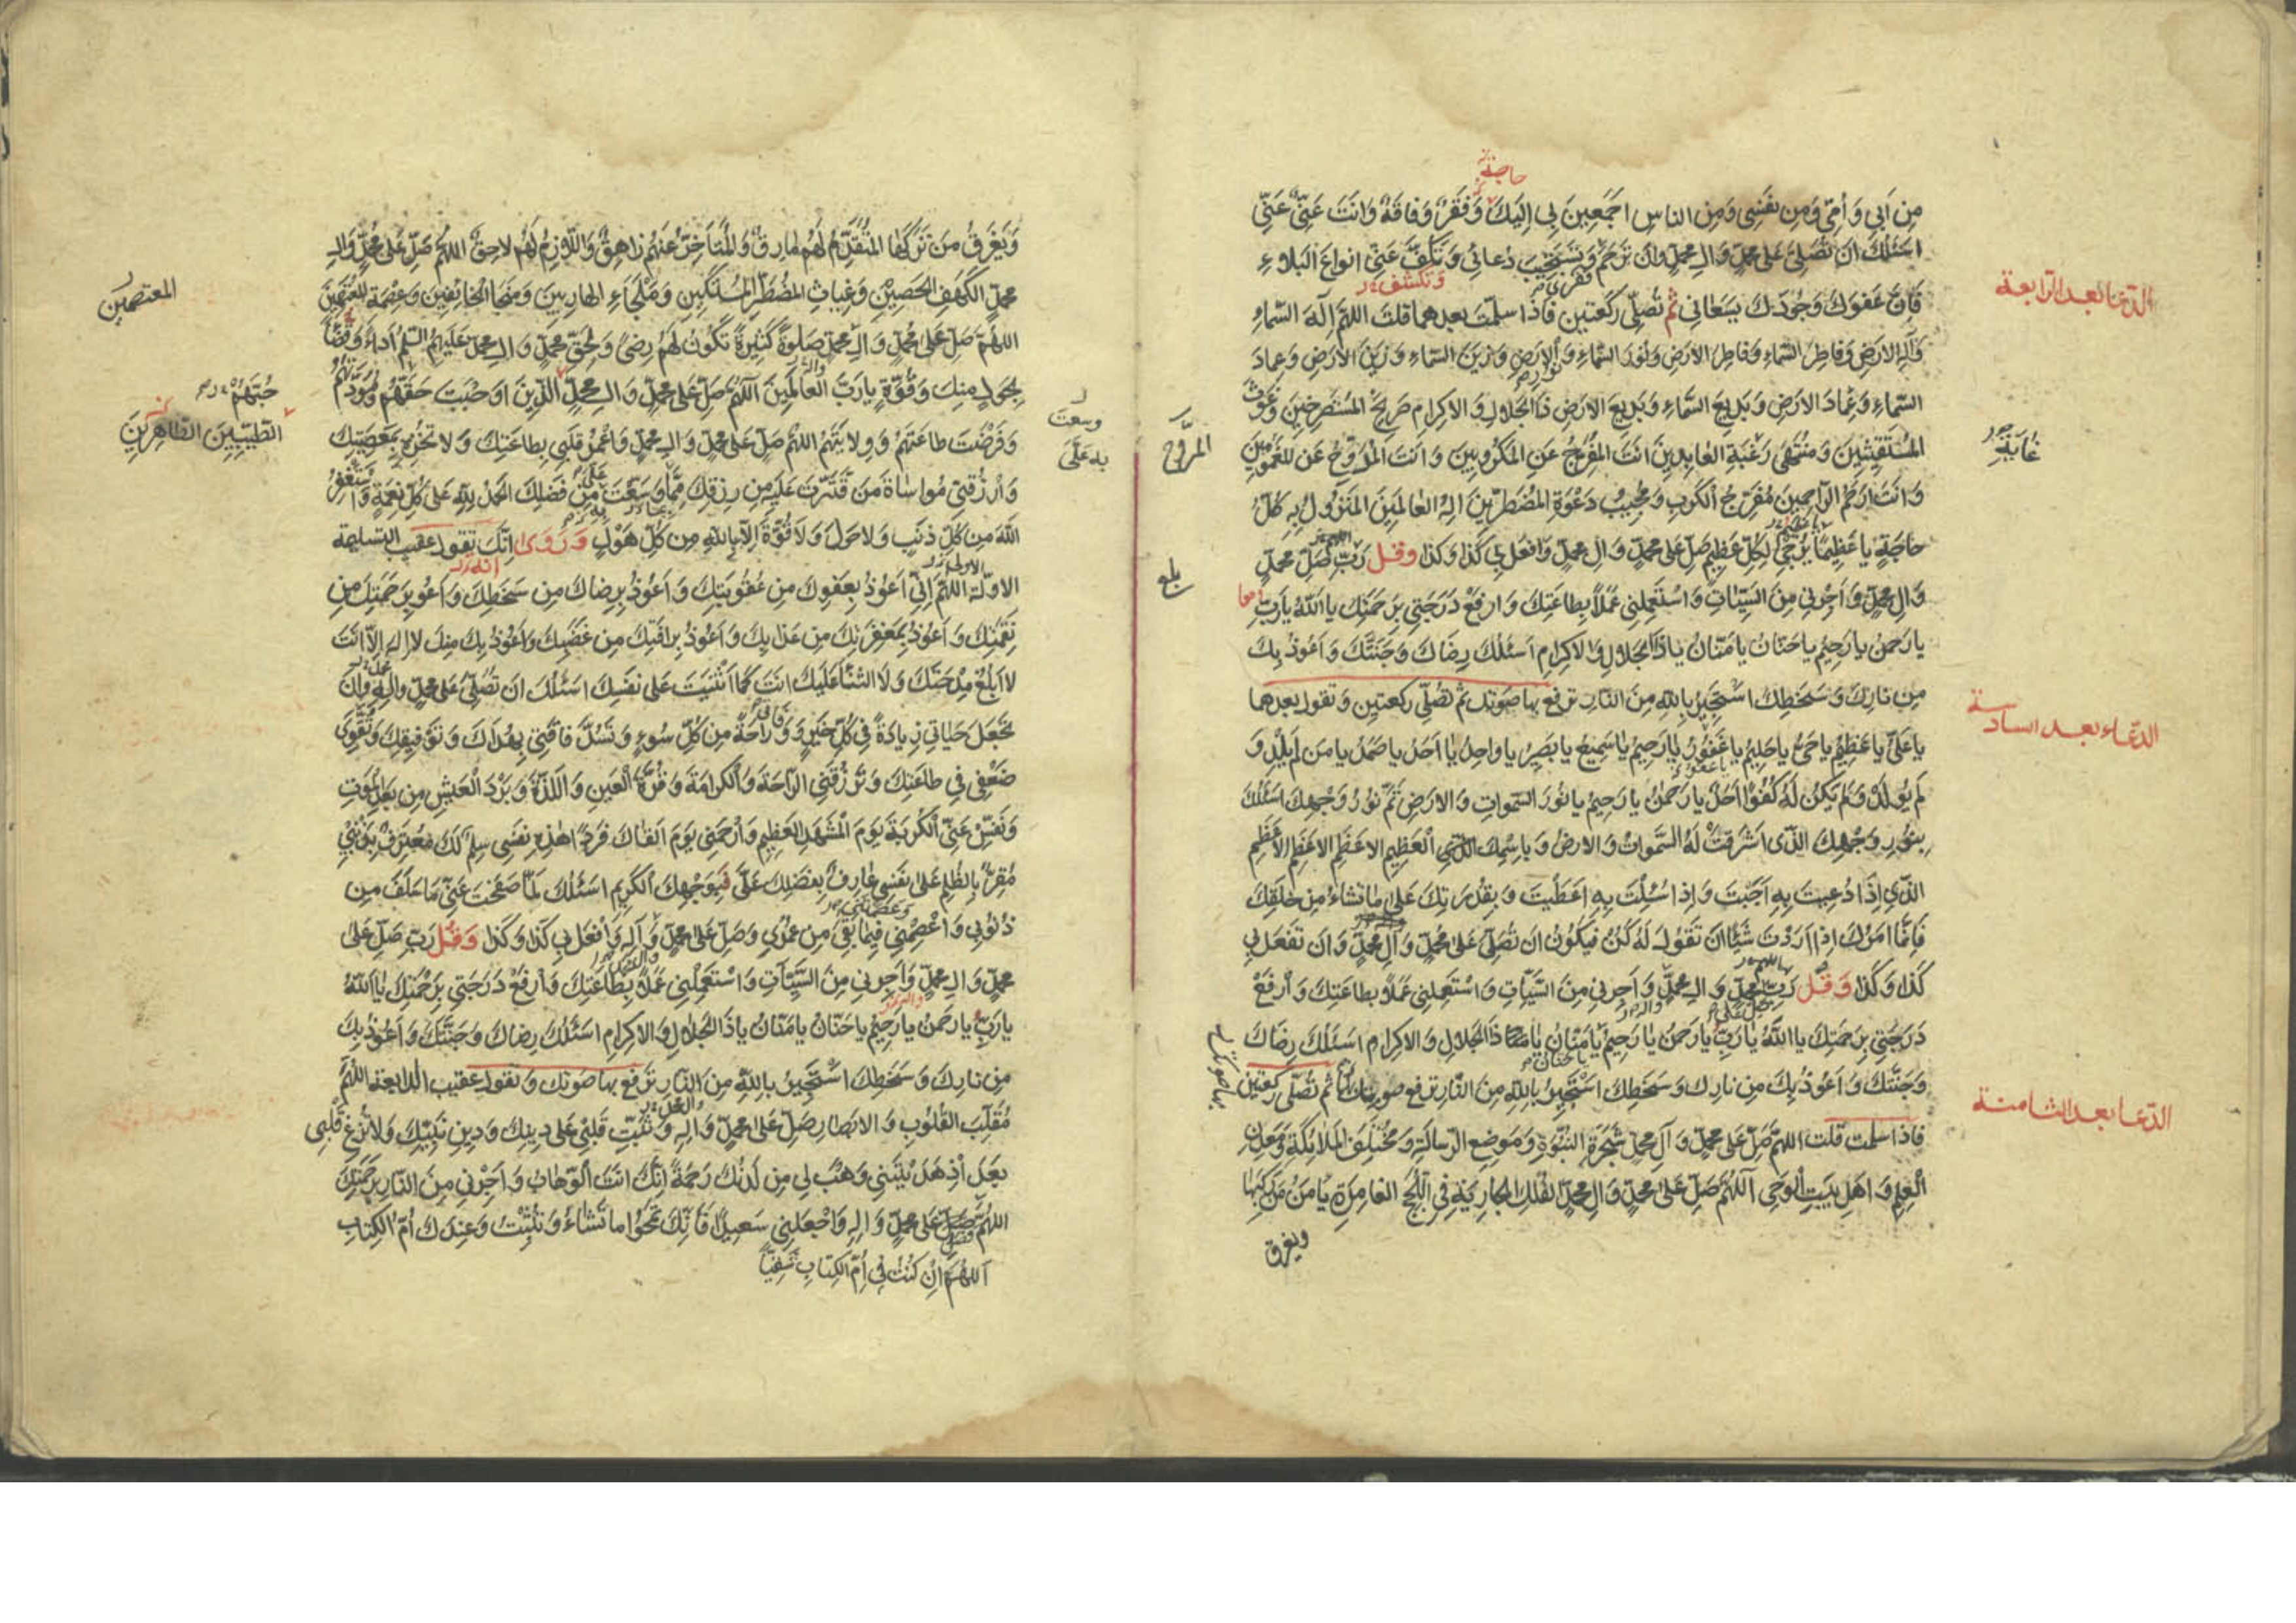 حاجة
مِن اَبي وَ أُمّي وَمِن نفسِي وَمِن الناسِ اجمَعِينَ بي اِليَكَ وَفَقرٌ وَفاقَةٌ وَانتَ غَنِيٌّ عَنّي
اسئلك ان تُصَلّيَ عَلى محمدٍ وَ الِ محمدٍ وان تَرحَم وَتَستجيبَ دُعائي وَ تَكُفَّ عَنّي انواعَ البَلاءِ
فقري
وتكشف
الدّعا بعد الرابعة
فَاِنَّ عَفوَكَ وَجُودَكَ يَسَعاني ثم تُصَلّي ركعتين فاذا سلّمت بعدهما قلت اللهمّ اِلٰهَ السّماءِ
وَ اِلٰهَ الارَضِ وَفاطِرَ السّماءِ وَفاطِرَ الارَضِ وَنُورَ السّماءِ وَ الارضِ وَزَينَ السّماءِ وَزَينَ الارَضِ وَعِمادَ
نور
السّماءِ وَعِمادَ الارَضِ وَبَديعَ السّماءِ وَبَديعَ الارَضِ ذَا الجَلالِ وَ الاكرامِ صَريخَ المستَصرِخينَ وَغَوثَ
المُستَغيثينَ وَ مُنتَهى رَغبَةِ العابِدينَ انتَ المُفَرِّجُ عَنِ المَكرُوبينَ وَ انتَ المُرَوِّحُ عَن المغمُومينَ
غايَة
المروّح
وَ انتَ ارحَمُ الراحِمينَ مُفَرِّجُ الكُرَبِ وَ مُجيبُ دَعوَةِ المُضطَرّينَ الٰهُ العالَمينَ المَنزُولُ بِهِ كُلُّ
حاجَةٍ يا عَظيمًا يُرجى لِكُلِّ عَظيمٍ صَلِّ عَلى محمدٍ وَ الِ محمدٍ وَ افعَل بي كَذا وَ كَذا وقل رَبِّ صَلِّ محمدٍ
بلغ
وَ الِ محمدٍ وَ اَجِرني مِنَ السَّيّئاتِ وَ استَعمِلني عَمَلًا بِطاعَتِكَ وَ ارفَع دَرَجَتي بِرَحمَتِك يا اللهُ يا رَبِّ
يا رَحمٰنُ يا رَحيمُ يا حَنّانُ يا مَنّانُ يا ذَا الجَلالِ وَ الاكرامِ اسئلك رِضاكَ وَ جَنَّتَكَ وَ اَعُوذُ بِكَ
مِن نارِكَ وَ سَخَطِكَ استَجيرُ بِاللهِ مِنَ النّارِ ترفع بها صوتك ثم تُصَلّي ركعتين وَ تقول بعدهما
الدّعاء بعد السادسة
يا عَليُّ يا عَظيمُ يا حَيُّ يا حَليمُ يا غَفُورُ يا رَحيمُ يا سَميعُ يا بَصيرُ يا واحِدُ يا اَحَدُ يا صَمَدُ يا مَن لَم يَلِد وَ
لَم يُولَد وَ لَم يَكُن لَهُ كُفُوًا اَحَدٌ يا رَحمٰنُ يا رَحيمُ يا نُورَ السّموات وَ الارَضِ تَمَّ نُورُ وَجهِكَ اسئَلُكَ
بِنُورِ وَجهِكَ الَّذى اشرَقَت لَهُ السَّمٰواتُ وَ الارضُ وَ باسمِك العَظيمِ الاعظَمِ الاعظَمِ الاَعظَمِ
الَّذى اِذا دُعيتَ بِهِ اَجَبتَ وَ اِذا سُئِلتَ بِهِ اعطَيتَ وَ بِقُدرَتِكَ عَلى ما تَشاءُ مِن خَلقِكَ
فَاِنَّما امرُكَ اِذا اَرَدتَ شَيئًا ان تَقُولَ لَهُ كُن فَيَكُونُ ان تُصَلّيَ عَلى مُحَمَّدٍ وَ الِ محمدٍ وَ ان تَفعَل بي
كَذا وَ كَذا وَقل رَبِّ محمدٍ وَ الِ محمدٍ وَ اَجِرني مِنَ السّيّئاتِ وَ استَعمِلني عَمَلًا بِطاعَتِكَ وَ ارفَع
صلّ على
دَرَجَتي بِرَحمَتِكَ يا اللهُ يا رَبِّ يا رَحمٰنُ يا رَحيمُ يا مَنّانُ ذَا الجَلالِ وَ الاكرامِ اسئَلُكَ رِضاكَ
يا حنّان
وَ جَنَّتَكَ وَ اَعُوذُ بِكَ مِن نارِك وَ سَخَطِكَ استَجيرُ بِاللهِ مِنَ النّارِ ترفع ثم تُصَلّي ركعتين
بها صوتك
الدّعا بعد الثامنة
فاذا سلمت قلت اللهمّ صَلِّ عَلى محمدٍ وَ الِ محمدٍ شَجَرَةِ النُّبُوَّةِ وَ مَوضِعِ الرّسالَةِ وَ مُختَلَفِ المَلائكَةِ وَمَعدِنِ
العِلمِ وَ اهلِ بَيتِ الوَحيِ اللّهمَّ صَلِّ عَلى محمدٍ وَ الِ محمدٍ الفُلكِ الجارِيَةِ فِى اللُّجَجِ الغامِرَةِ يَامَنُ مَن رَكِبَها
ويغرق
وَ يَغرَقُ مَن تَرَكَها المُتَقَدِّمُ لَهُم مارِقٌ وَ المُتَاَخِّرُ عَنهُم زاهِقٌ وَ اللّازِمُ لَهُم لاحِقٌ اللهمّ صَلِّ عَلى محمدٍ وَ الِ
محمدٍ الكَهفِ الحَصينِ وَ غِياثِ المضطَرِّ المُستَكينِ وَ مَلجَاءِ الهارِبينَ وَ مَنجَا الخائِفينَ وَ عِصمَةِ للمعتصمين
المعتصمين
اللهمّ صَلِّ عَلى محمدٍ وَ الِ محمدٍ صَلوةً كَثيرَةً تَكُونُ لَهُم رِضىً وَ لِحَقِّ محمدٍ وَ الِ محمدٍ عَلَيهِمُ السّلمُ اَداءً وَ قَضاءً
بِحَولٍ مِنكَ وَ قُوَّةٍ يا رَبَّ العالَمينَ اللهمّ صَلِّ عَلى محمدٍ وَ الِ محمدٍ الَّذينَ اوجَبتَ حَقَّهُم وَ مَوَدَّتَهُم
حُبَّهُم
الطّيّبِينَ الطّاهِرينَ
وَ فَرَضتَ طاعَتَهُم وَ وِلايَتَهُم اللهمّ صَلِّ عَلى محمدٍ وَ الِ محمدٍ وَ اعمُر قَلبي بِطاعَتِكَ وَ لا تُخزِهِ بِمَعصيَتِكَ
وسعت
به عَلَيَّ
وَ ارزُقني مُواساةَ مَن قَتَّرتَ عَلَيهِ مِن رِزقِكَ مِمّا وَسَّعتَ عَلَيَّ مِن فَضلِكَ الحَمدُ للهِ عَلى كُلِّ نِعمَةٍ وَ استَغفِرُ
اللهَ مِن كُلِّ ذَنبٍ وَ لا حَولَ وَ لا قُوَّةَ اِلّا بِاللهِ مِن كُلِّ هَولٍ وَرُوِىَ انّكَ تقول عقيب التسليمة
انه
الاوّلة اللهمّ اِنّي اَعُوذُ بِعَفوِكَ مِن عُقُوبَتِكَ وَ اَعُوذُ بِرِضاكَ مِن سَخَطِكَ وَ اَعُو بِرَحمَتِكَ مِن
نَقِمَتِكَ وَ اَعُوذُ بِمَغفِرَتِكَ مِن عَذابِكَ وَ اَعُوذُ بِرافَتِكَ مِن غَضَبِكَ وَ اَعُوذُ بِكَ مِنكَ لا اِلٰه اِلّا انتَ
لا اَبلُغُ مِدحَتَكَ وَ لَا الثَّناءَ عَلَيكَ انتَ كَما اَثنَيتَ عَلى نَفسِكَ اسئَلُكَ ان تُصَلّيَ عَلى محمدٍ وَ الِهِ وَ ان
تَجعَلَ حَياتي زِيادَةً في كُلِّ خَيرٍ وَ وَفاتي راحَةً مِن كُلِّ سُوءٍ وَ تَسُدَّ فاقَتي بِهُداكَ وَ تَوفيقِكَ وَ تُقَوّيَ
ضَعفي في طاعَتِكَ وَ تَرزُقَني الرّاحَةَ وَ الكَرامَةَ وَ قُرَّةَ العَينِ وَ اللَّذَّةَ وَ بَردَ العَيشِ مِن بَعدِ المَوتِ
وَ نَفِّس عَنّي الكُربَةَ يَومَ المَشهَدِ العَظيمِ وَ ارحَمني يَومَ القاكَ فَردًا هٰذِهِ نَفسي سِلمٌ لَكَ مُعتَرِفٌ بِذَنبي
مُقِرٌّ بِالظُّلمِ عَلى نَفسي عارِفٌ بِفَضلِكَ عَلَيَّ فَبِوَجهِكَ الكَريمِ اسئَلُكَ لَمّا صَفَحتَ عَنّي ما سَلَفَ مِن
ذُنُوبي وَ اعصِمني فيما بَقِيَ مِن عُمري وَ صَلِّ عَلى محمدٍ وَ آلِهِ وَ افعَل بي كَذا وَ كَذا وَقُل رَبِّ صَلِّ عَلى
محمدٍ وَ الِ محمدٍ وَ اَجِرني مِنَ السَّيّئاتِ وَ استَعمِلني عَمَلًا بِطاعَتِكَ وَ ارفَع دَرَجَتي بِرَحمَتِكَ يا اللهُ
يا رَبِّ يا رَحمٰنُ يا رَحيمُ يا حَنّانُ يا مَنّانُ يا ذَا الجَلالِ وَ الاكرامِ اسئَلُكَ رِضاكَ وَ جَنَّتَكَ وَ اَعُوذُ بِكَ
مِن نارِكَ وَ سَخَطِكَ استَجيرُ بِاللهِ مِنَ النّارِ ترفع بها صوتك وَ تقول عقيب الرابعة اللهمّ
مُقَلِّبَ القُلُوبِ وَ الابصارِ صَلِّ عَلى محمدٍ وَ الِهِ وَ ثَبِّت قَلبي عَلى دينِكَ وَ دينِ نَبيّكَ وَ لا تُزِغ قَلبي
بَعدَ اِذ هَدَيتَني وَ هَب لي مِن لَدُنكَ رَحمَةً اِنَّكَ انتَ الوَهّابُ وَ اَجِرني مِنَ النّارِ بِرَحمَتِكَ
اللهمّ صَلِّ عَلى محمدٍ وَ الِهِ وَ اجعَلني سَعيدًا فَاِنَّكَ تَمحُوا ما تَشاءُ وَ تُثبِتُ وَ عِندَكَ اُمُّ الكِتابِ
اَللهمّ اِن كُنتُ في اُمِّ الكِتابِ شَقِيًّا